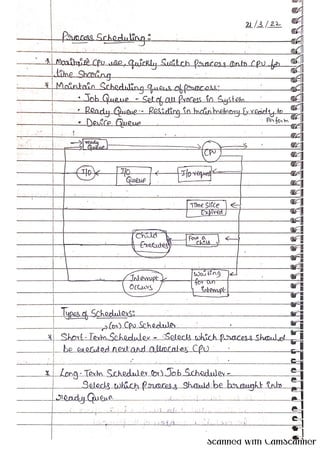 21/3/22
Process Scheduling:
* Maximize CPU use, Quickly Switch Process onto CPU for
time Sharing
* Maintain Scheduling queues of process:
• Job Queue - Set of all Process in System
• Ready Queue - Residing in main memory & ready to
• Device Queue
ready
Queue
CPU
I/O
I/O
Queue
I/O request
Time Slice
Expired
Child
Executes
Fork a
child
Interrupt
Occurs
Waiting
for an
Interrupt
Types of Schedulers:
(or) CPU Scheduler
* Short-Term Scheduler - Selects which process should
be executed next and allocates CPU
* Long-Term Scheduler (or) Job Scheduler-
Selects which Process should be brought into
ready Queue
Scanned with CamScanner